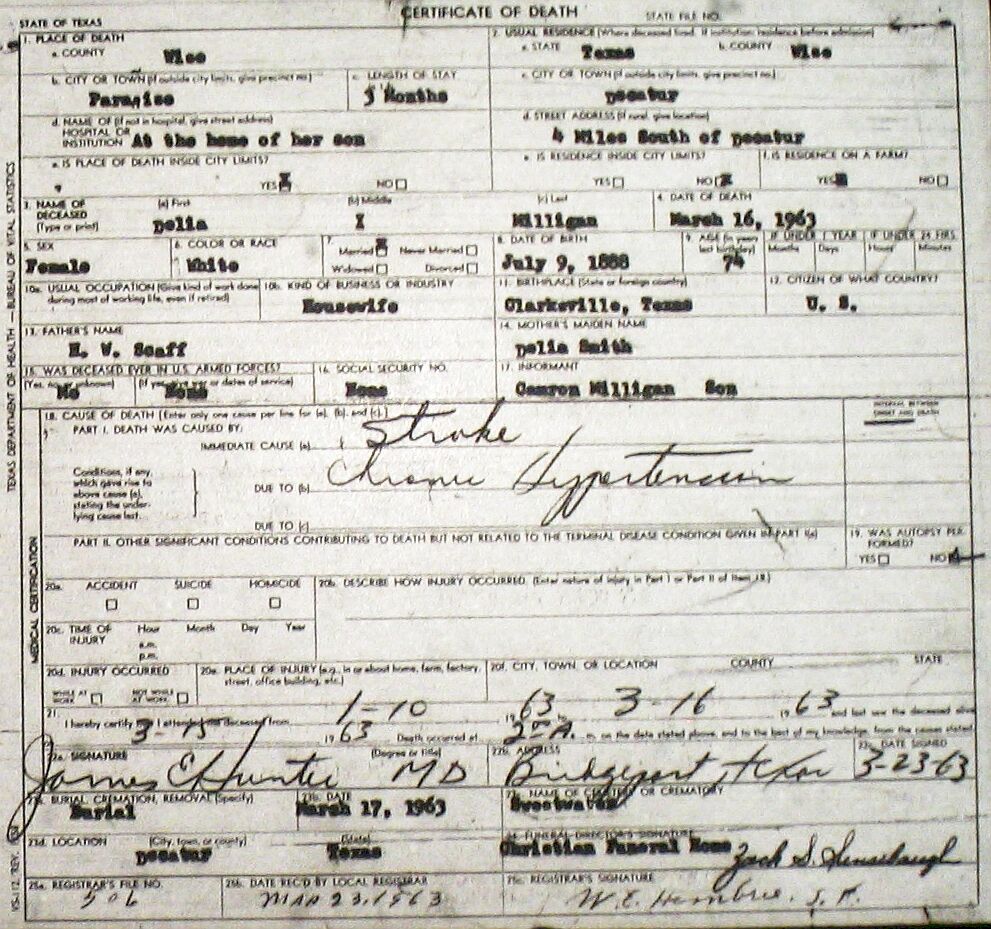 CERTIFICATE OF DEATH
STATE OF TEXAS STATE FILE NO.
1. PLACE OF DEATH
a. COUNTY Wise
2. USUAL RESIDENCE (Where deceased lived. If institution: residence before admission)
a. STATE Texas b. COUNTY Wise
b. CITY OR TOWN (If outside city limits, give precinct no.) Paradise
c. LENGTH OF STAY 3 Months
c. CITY OR TOWN (If outside city limits, give precinct no.) Decatur
d. NAME OF (If not in hospital, give street address)
HOSPITAL OR INSTITUTION At the home of her son
d. STREET ADDRESS (If rural, give location) 4 Miles South of Decatur
e. IS PLACE OF DEATH INSIDE CITY LIMITS?
YES NO
e. IS RESIDENCE INSIDE CITY LIMITS?
YES NO
f. IS RESIDENCE ON A FARM?
YES NO
3. NAME OF DECEASED (Type or print)
(a) First Delia
(b) Middle I
(c) Last Milligan
4. DATE OF DEATH March 16, 1963
5. SEX Female
6. COLOR OR RACE White
7. Married Never Married
Widowed Divorced
8. DATE OF BIRTH July 9, 1888
9. AGE (In years last birthday) 74
IF UNDER 1 YEAR Months Days
IF UNDER 24 HRS. Hours Minutes
10a. USUAL OCCUPATION (Give kind of work done during most of working life, even if retired)
10b. KIND OF BUSINESS OR INDUSTRY
Housewife
11. BIRTHPLACE (State or foreign country) Clarksville, Texas
12. CITIZEN OF WHAT COUNTRY? U. S.
13. FATHER'S NAME H. W. Scaff
14. MOTHER'S MAIDEN NAME Delia Smith
15. WAS DECEASED EVER IN U.S. ARMED FORCES?
(Yes, no, or unknown) No
(If yes, give war or dates of service) None
16. SOCIAL SECURITY NO. None
17. INFORMANT Camron Milligan Son
18. CAUSE OF DEATH (Enter only one cause per line for (a), (b), and (c).)
PART I. DEATH WAS CAUSED BY:
IMMEDIATE CAUSE (a) Stroke
Conditions, if any, which gave rise to above cause (a), stating the underlying cause last.
DUE TO (b) Chronic Hypertension
DUE TO (c)
INTERVAL BETWEEN ONSET AND DEATH
PART II. OTHER SIGNIFICANT CONDITIONS CONTRIBUTING TO DEATH BUT NOT RELATED TO THE TERMINAL DISEASE CONDITION GIVEN IN PART I(a)
19. WAS AUTOPSY PERFORMED?
YES NO
20a. ACCIDENT SUICIDE HOMICIDE
20b. DESCRIBE HOW INJURY OCCURRED. (Enter nature of injury in Part I or Part II of Item 18.)
20c. TIME OF INJURY Hour Month Day Year
a.m.
p.m.
20d. INJURY OCCURRED
WHILE AT WORK NOT WHILE AT WORK
20e. PLACE OF INJURY (e.g., in or about home, farm, factory, street, office building, etc.)
20f. CITY, TOWN, OR LOCATION COUNTY STATE
21. I hereby certify that I attended the deceased from 1-10 1963 to 3-16 1963 and last saw the deceased alive
3-15 1963 Death occurred at 2:00 A. m. on the date stated above, and to the best of my knowledge, from the causes stated.
22a. SIGNATURE James C Hunter (Degree or title) MD
22b. ADDRESS Bridgeport, Texas
22c. DATE SIGNED 3-23-63
23a. BURIAL, CREMATION, REMOVAL (Specify) Burial
23b. DATE March 17, 1963
23c. NAME OF CEMETERY OR CREMATORY Sweetwater
23d. LOCATION (City, town, or county) (State)
Decatur Texas
24. FUNERAL DIRECTOR'S SIGNATURE
Christian Funeral Home Zack S.
25a. REGISTRAR'S FILE NO. 506
25b. DATE REC'D BY LOCAL REGISTRAR MAR 23, 1963
25c. REGISTRAR'S SIGNATURE W. E.
TEXAS DEPARTMENT OF HEALTH — BUREAU OF VITAL STATISTICS
MEDICAL CERTIFICATION
VS-112 REV.